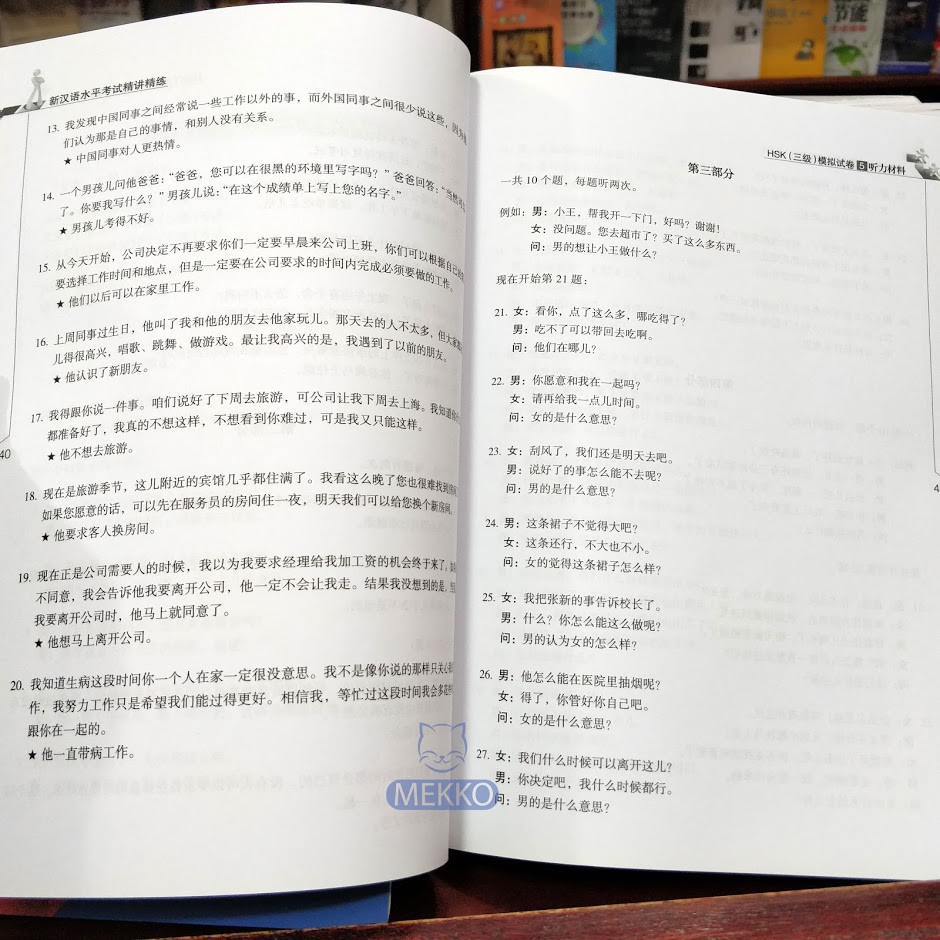 新汉语水平考试精讲精练
13. 我发现中国同事之间经常说一些工作以外的事，而外国同事之间很少说这些，因为他
们认为那是自己的事情，和别人没有关系。
★ 中国同事对人更热情。
14. 一个男孩儿问他爸爸：“爸爸，您可以在很黑的环境里写字吗？”爸爸回答：“当然可以
了。你要我写什么？”男孩儿说：“在这个成绩单上写上您的名字。”
★ 男孩儿考得不好。
15. 从今天开始，公司决定不再要求你们一定要早晨来公司上班，你们可以根据自己的
要选择工作时间和地点，但是一定要在公司要求的时间内完成必须要做的工作。
★ 他们以后可以在家里工作。
16. 上周同事过生日，他叫了我和他的朋友去他家玩儿。那天去的人不太多，但大家
儿得很高兴，唱歌、跳舞、做游戏。最让我高兴的是，我遇到了以前的朋友。
★ 他认识了新朋友。
17. 我得跟你说一件事。咱们说好了下周去旅游，可公司让我下周去上海。我知道你
都准备好了，我真的不想这样，不想看到你难过，可是我又只能这样。
★ 他不想去旅游。
40
18. 现在是旅游季节，这儿附近的宾馆几乎都住满了。我看这么晚了您也很难找到房间，
如果您愿意的话，可以先在服务员的房间住一夜，明天我们可以给您换个新房间。
★ 他要求客人换房间。
19. 现在正是公司需要人的时候，我以为我要求经理给我加工资的机会终于来了；如
不同意，我会告诉他我要离开公司，他一定不会让我走。结果我没想到的是，当
我要离开公司时，他马上就同意了。
★ 他想马上离开公司。
20. 我知道生病这段时间你一个人在家一定很没意思。我不是像你说的那样只关心
作，我努力工作只是希望我们能过得更好。相信我，等忙过这段时间我会多花
跟你在一起的。
★ 他一直带病工作。
HSK（三级）模拟试卷 5 听力材料
第三部分
一共 10 个题，每题听两次。
例如：男：小王，帮我开一下门，好吗？谢谢！
女：没问题。您去超市了？买了这么多东西。
问：男的想让小王做什么？
现在开始第 21 题：
21. 女：看你，点了这么多，哪吃得了？
男：吃不了可以带回去吃啊。
问：他们在哪儿？
22. 男：你愿意和我在一起吗？
女：请再给我一点儿时间。
问：女的是什么意思？
23. 女：刮风了，我们还是明天去吧。
男：说好了的事怎么能不去呢？
问：男的是什么意思？
4
24. 男：这条裙子不觉得大吧？
女：这条还行，不大也不小。
问：女的觉得这条裙子怎么样？
25. 女：我把张新的事告诉校长了。
男：什么？你怎么能这么做呢？
问：男的认为女的怎么样？
26. 男：他怎么能在医院里抽烟呢？
女：得了，你管好你自己吧。
问：女的是什么意思？
27. 女：我们什么时候可以离开这儿？
男：你决定吧，我什么时候都行。
问：男的是什么意思？
MEKKO
节能